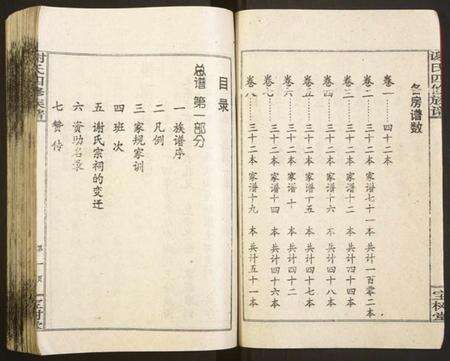 谢氏四修族谱
宝树堂
各房谱数
卷一……四十二本
卷二……三十一本 家谱七十一本 共计一百零二本
卷三……三十二本 家谱十二本 共计四十四本
卷四……三十二本 家谱十六本 共计四十八本
卷五……三十二本 家谱十五本 共计四十七本
卷六……三十二本 家谱十本 共计四十二
卷七……三十二本 家谱十四本 共计四十六本
卷八……三十二本 家谱十九本 共计五十一本
目录
总谱 第一部分
一 族谱序
二 凡例
三 家规家训
四 班次
五 谢氏宗祠的变迁
六 资助名录
七 赞传
谢氏四修族谱
第一页
宝树堂